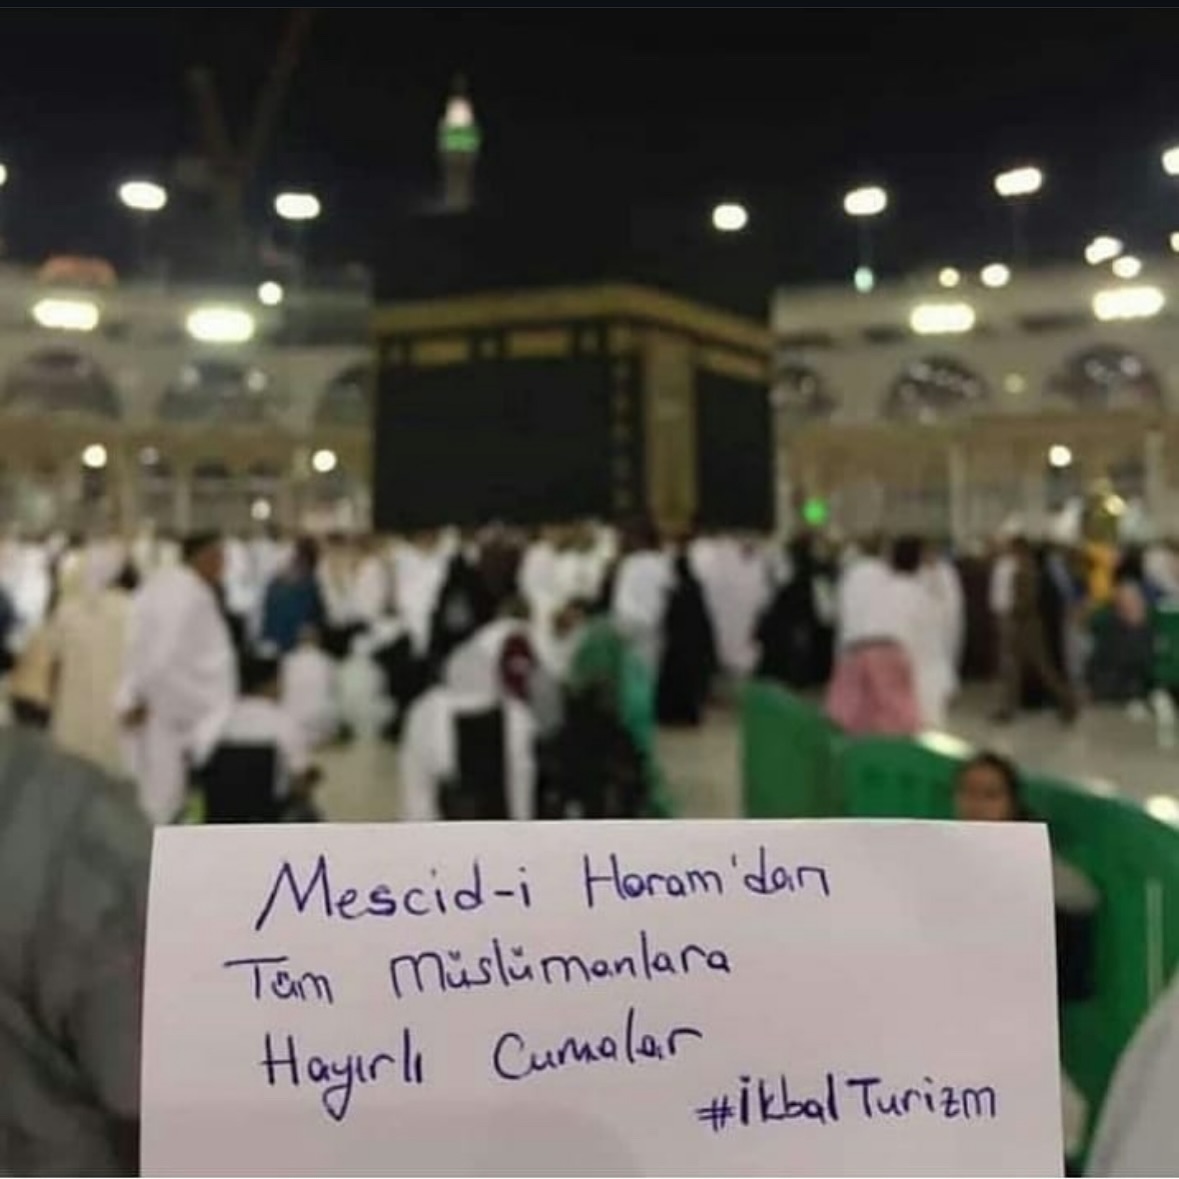 Mescid-i Haram'dan
Tüm Müslümanlara
Hayırlı Cumalar
#İkbal Turizm